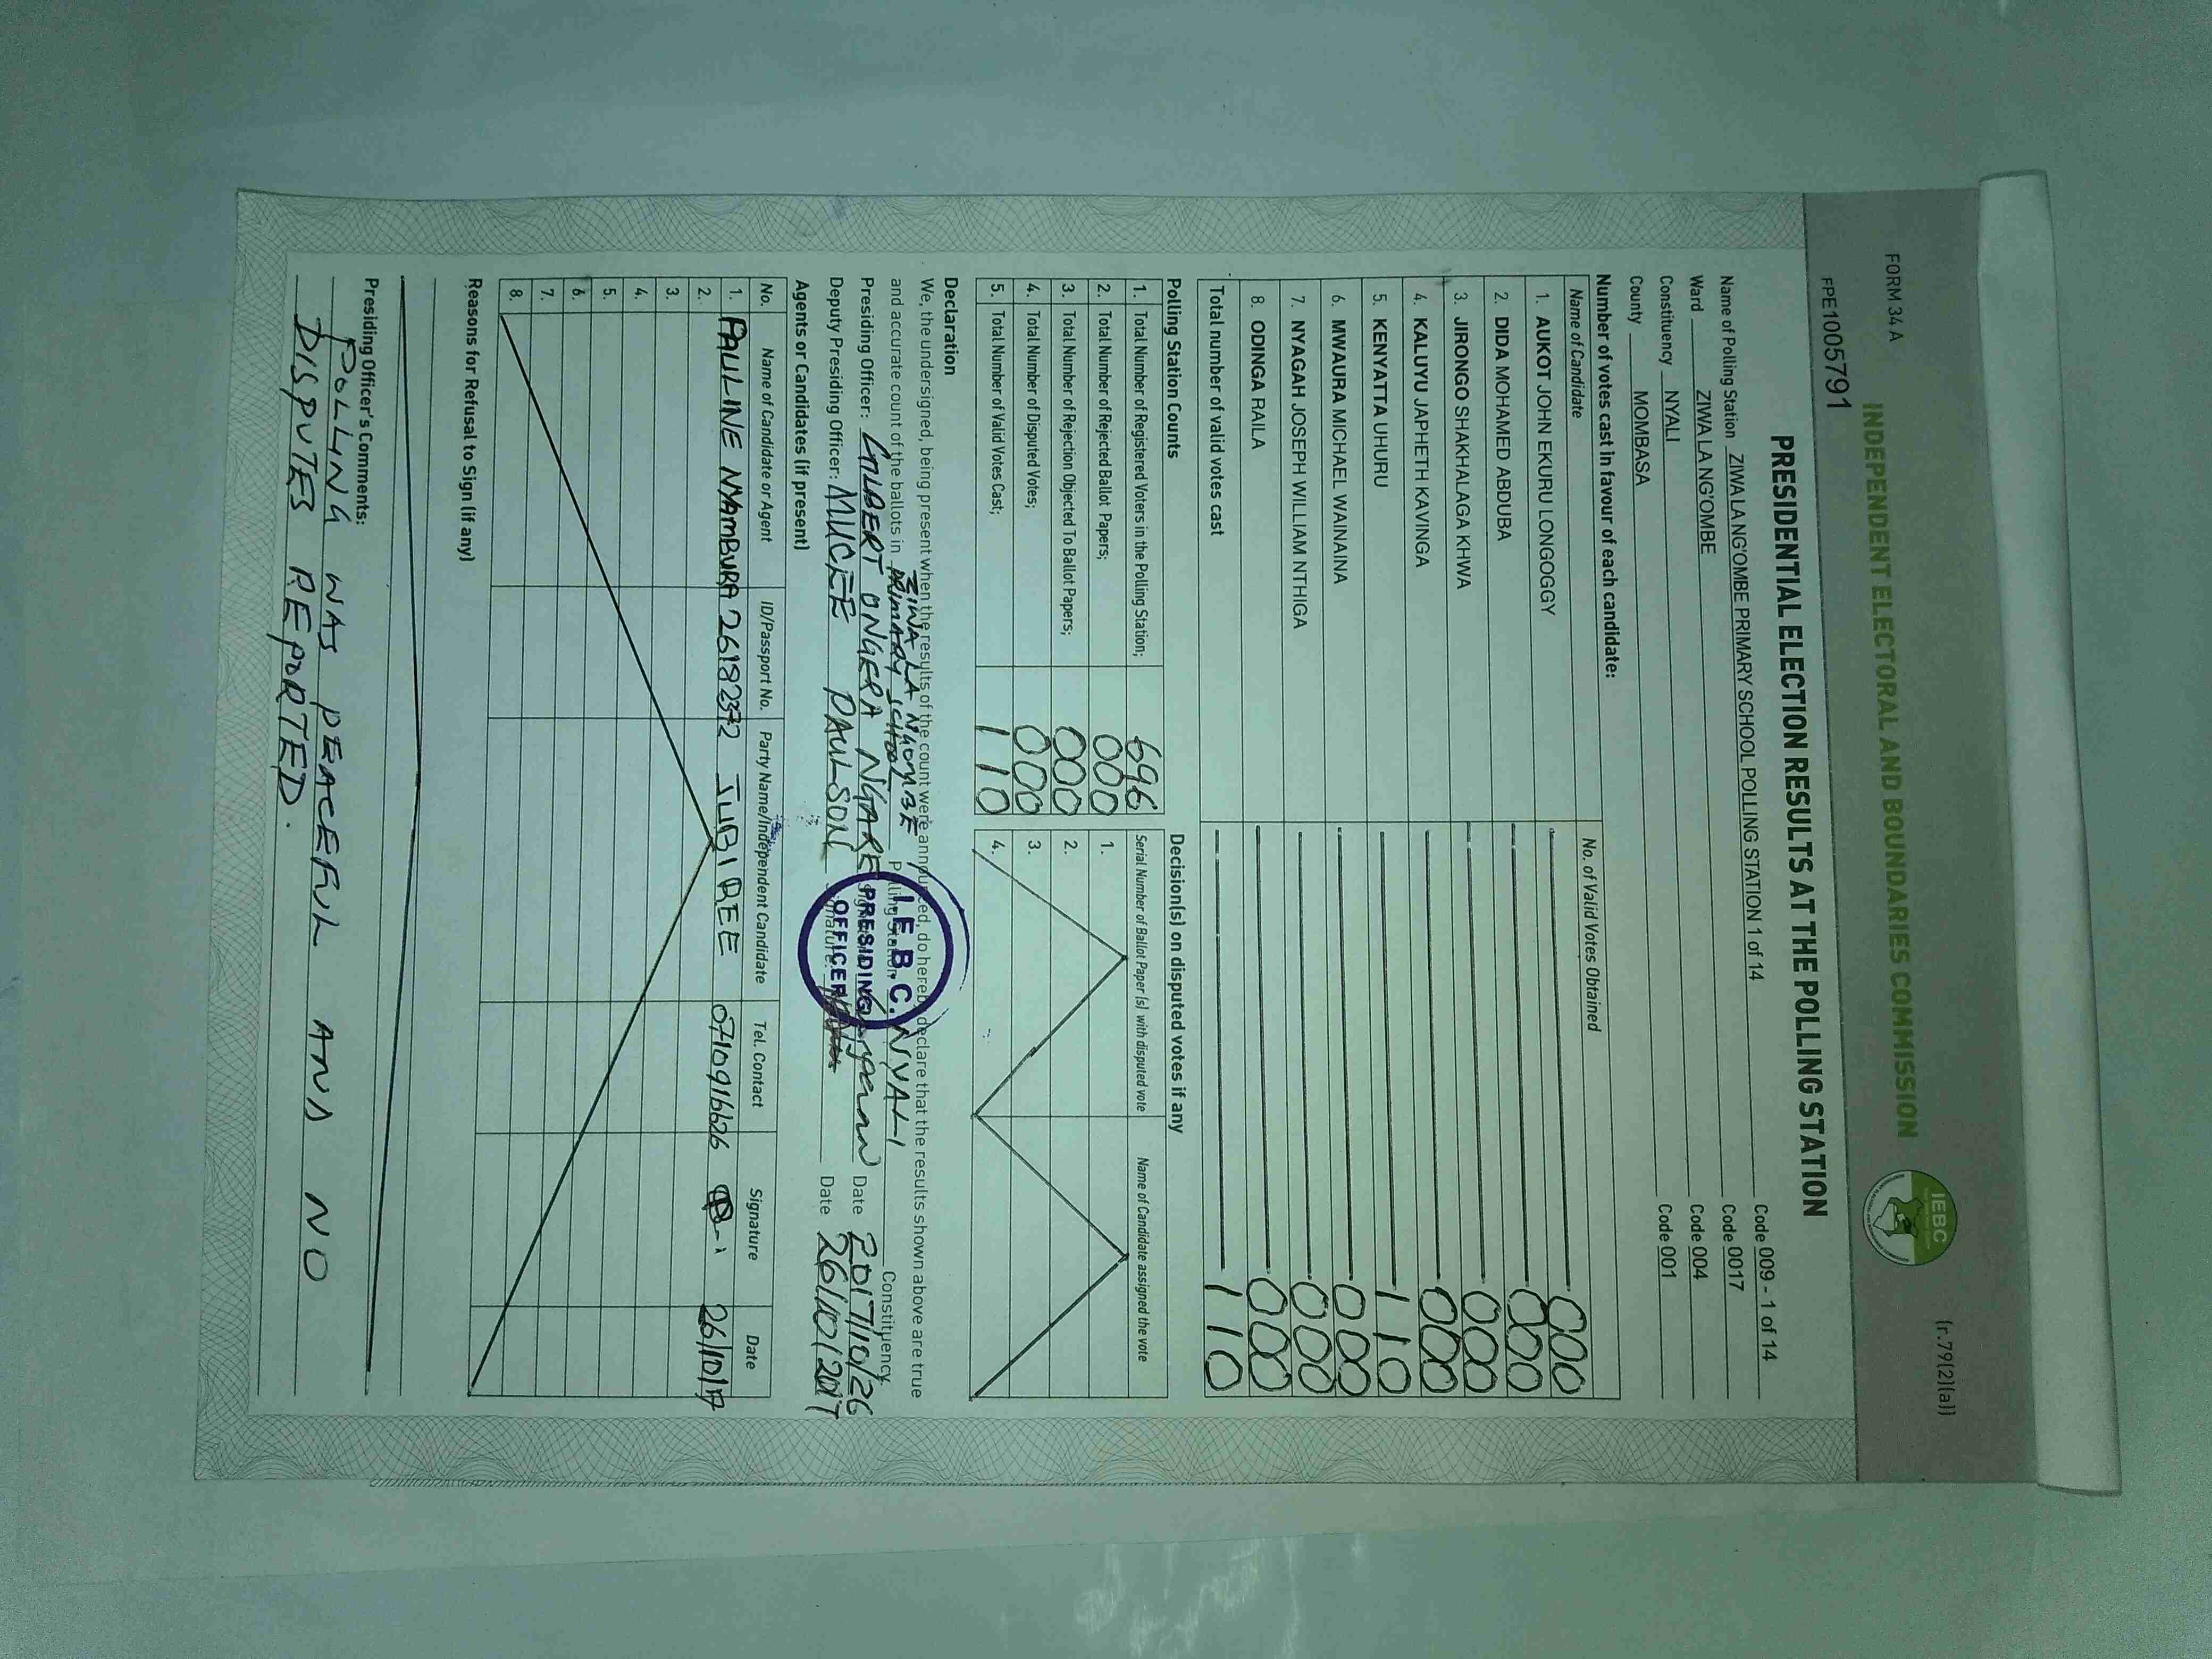 FORM 34 A
(r.79(2)(a))
INDEPENDENT ELECTORAL AND BOUNDARIES COMMISSION
IEBC
FPE1005791
PRESIDENTIAL ELECTION RESULTS AT THE POLLING STATION
Name of Polling Station ZIWA LA NG'OMBE PRIMARY SCHOOL POLLING STATION 1 of 14 Code 009 - 1 of 14
Ward ZIWA LA NG'OMBE Code 0017
Constituency NYALI Code 004
County MOMBASA Code 001
Number of votes cast in favour of each candidate:
Name of Candidate No. of Valid Votes Obtained
1. AUKOT JOHN EKURU LONGOGGY 000
2. DIDA MOHAMED ABDUBA 000
3. JIRONGO SHAKHALAGA KHWA 000
4. KALUYU JAPHETH KAVINGA 000
5. KENYATTA UHURU 110
6. MWAURA MICHAEL WAINAINA 000
7. NYAGAH JOSEPH WILLIAM NTHIGA 000
8. ODINGA RAILA 000
Total number of valid votes cast 110
Polling Station Counts
1. Total Number of Registered Voters in the Polling Station; 696
2. Total Number of Rejected Ballot Papers; 000
3. Total Number of Rejection Objected To Ballot Papers; 000
4. Total Number of Disputed Votes; 000
5. Total Number of Valid Votes Cast; 110
Decision(s) on disputed votes if any
Serial Number of Ballot Paper (s) with disputed vote Name of Candidate assigned the vote
1.
2.
3.
4.
Declaration
We, the undersigned, being present when the results of the count were announced, do hereby declare that the results shown above are true
and accurate count of the ballots in ZIWA LA NGOMBE PRIMARY SCHOOL Polling Station NYALI Constituency
Presiding Officer: GILBERT ONGERA NGARE Date 2017/10/26
Deputy Presiding Officer: MUCEE PAULSON Signature: Date 26/10/2017
I.E.B.C.
PRESIDING
OFFICER
Agents or Candidates (if present)
No. Name of Candidate or Agent ID/Passport No. Party Name/Independent Candidate Tel. Contact Signature Date
1. PAULINE NYAMBURA 26182372 JUBILEE 0710916626 26/10/17
2.
3.
4.
5.
6.
7.
8.
Reasons for Refusal to Sign (if any)
Presiding Officer's Comments:
POLLING WAS PEACEFUL AND NO
DISPUTES REPORTED.